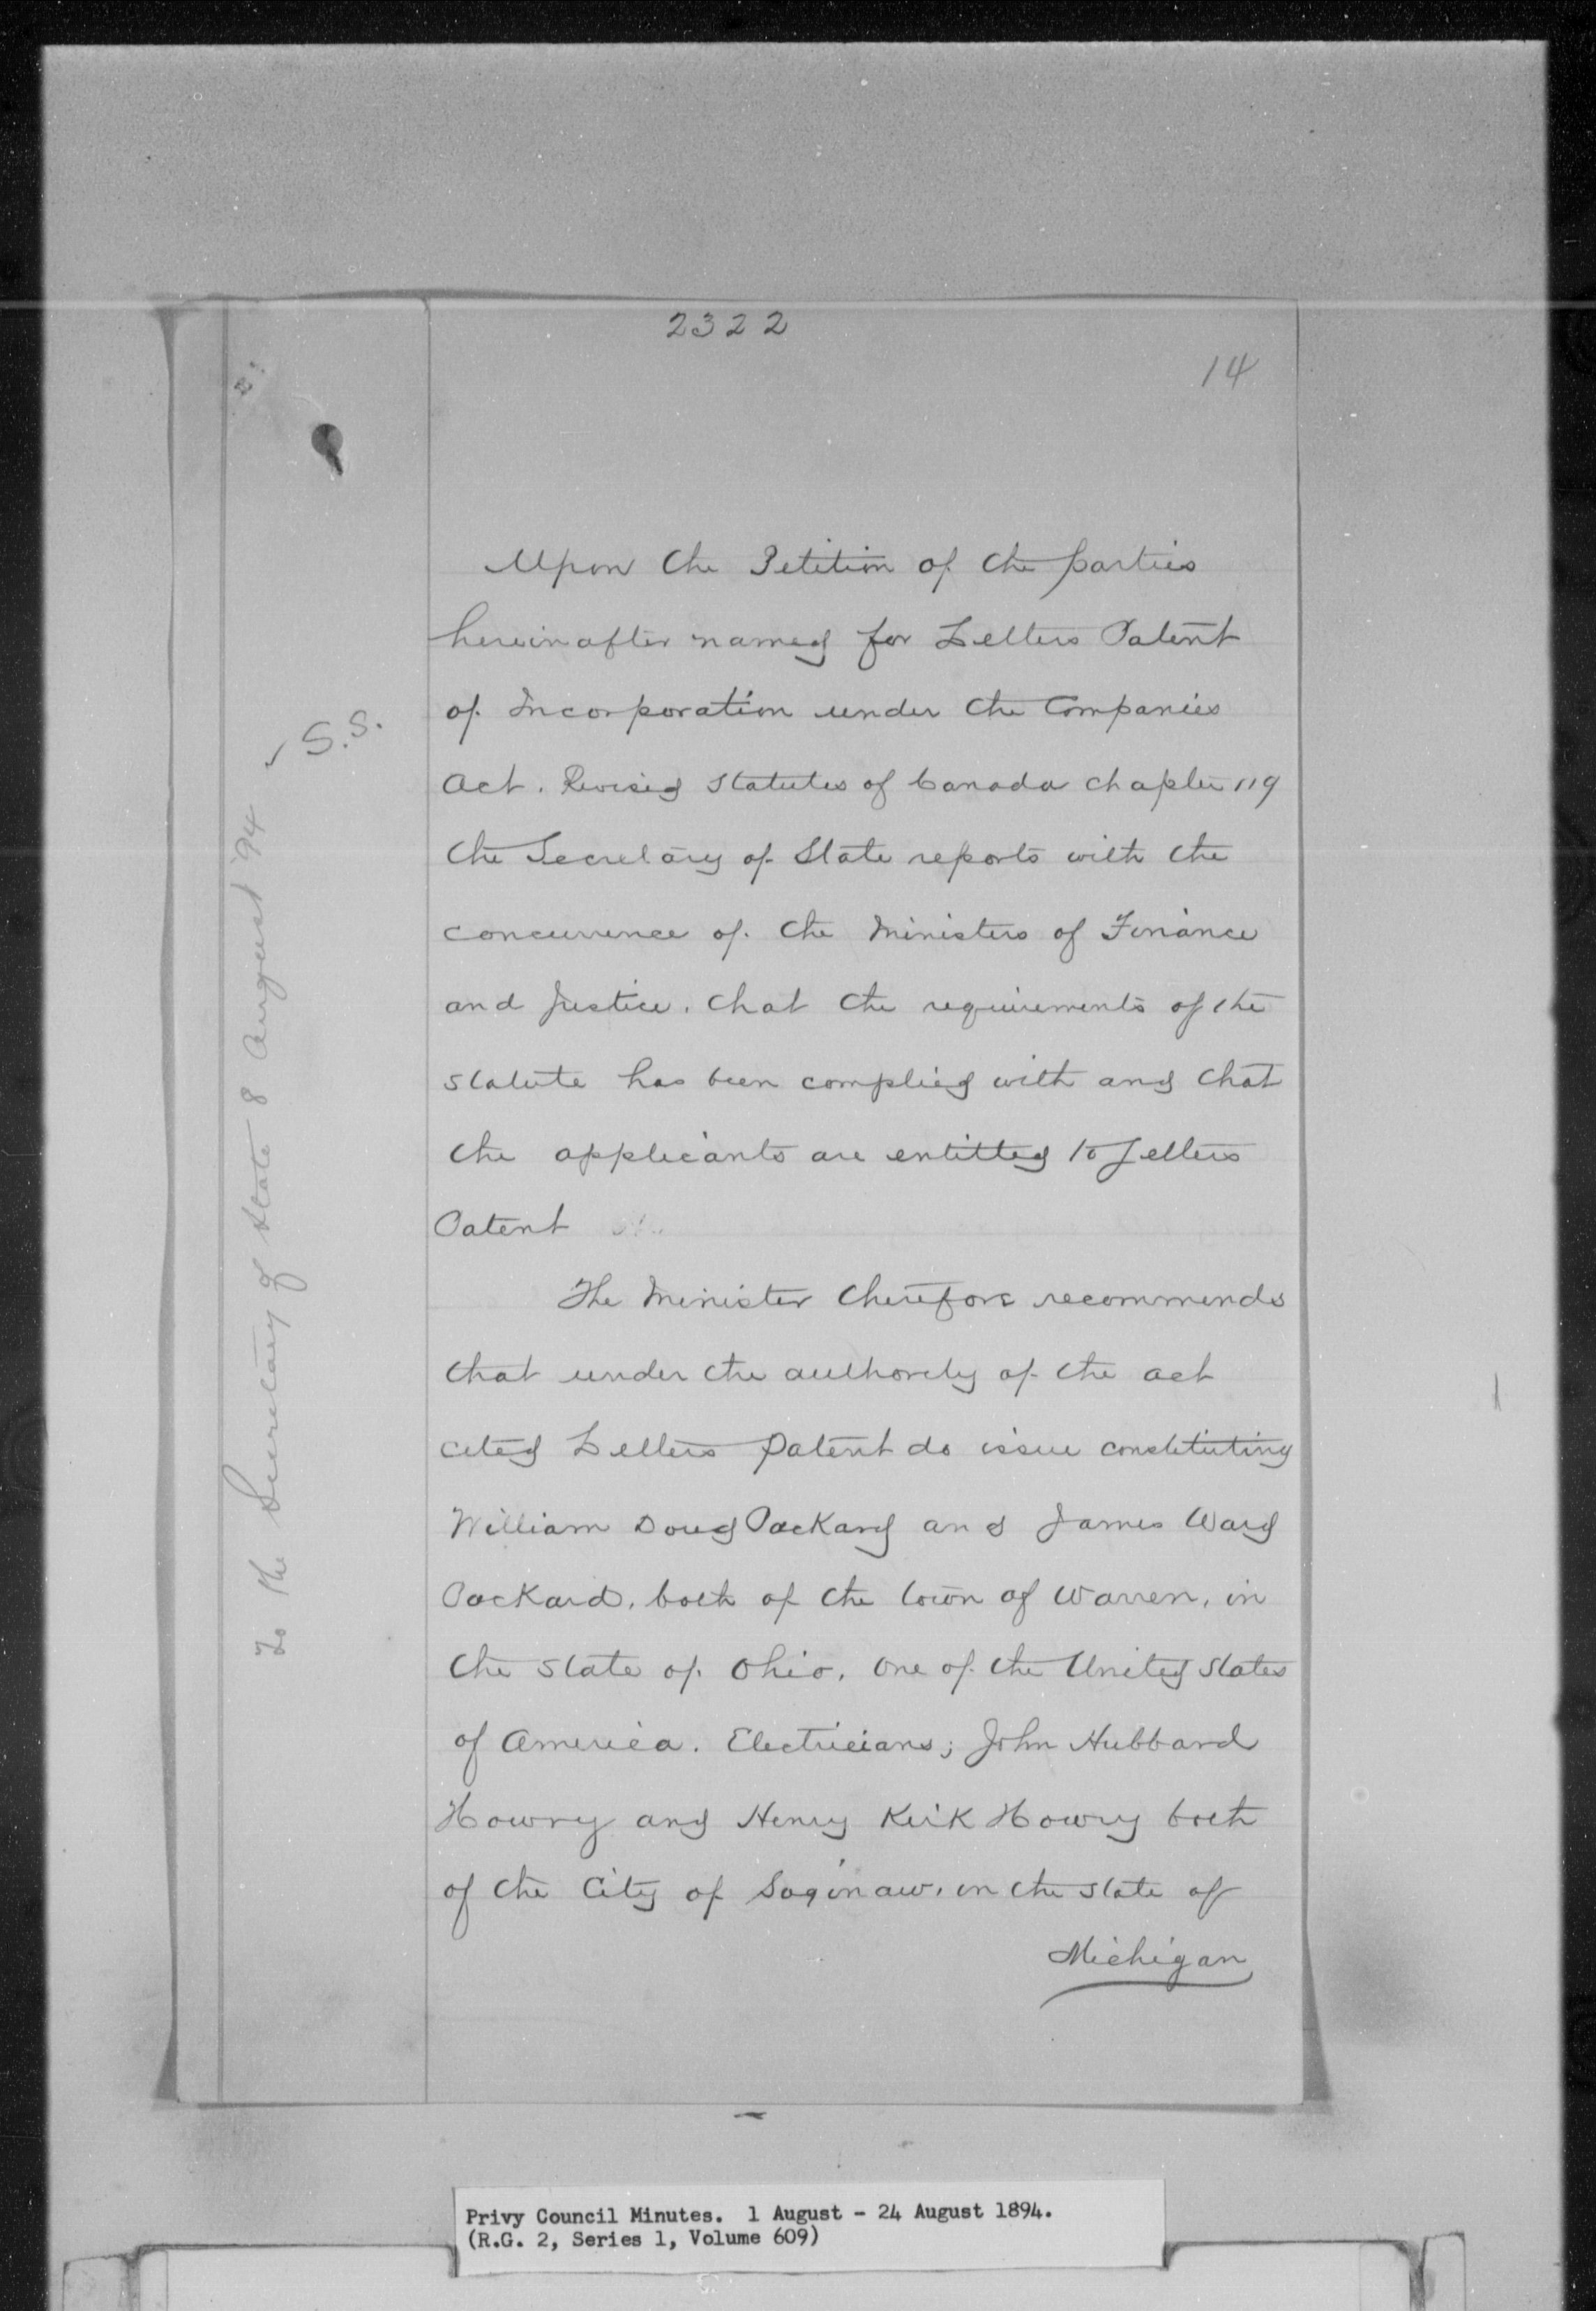 2322
14
Upon the Petition of the parties
hereinafter named for Letters Patent
of Incorporation under the Companies
Act. Revised Statutes of Canada chapter 119
the Secretary of State reports with the
concurrence of the Ministers of Finance
and Justice, that the requirements of the
statute has been complied with and that
the applicants are entitled to Letters
Patent
The Minister therefore recommends
that under the authority of the act
cited Letters Patent do issue constituting
William Doud Packard and James Ward
Packard, both of the town of Warren, in
the State of Ohio, One of the United States
of America. Electricians; John Hubbard
Howry and Henry Kirk Howry both
of the City of Saginaw, in the State of
Michigan
S.S.
To the Secretary of State 8 August '94
Privy Council Minutes. 1 August - 24 August 1894.
(R.G. 2, Series 1, Volume 609)